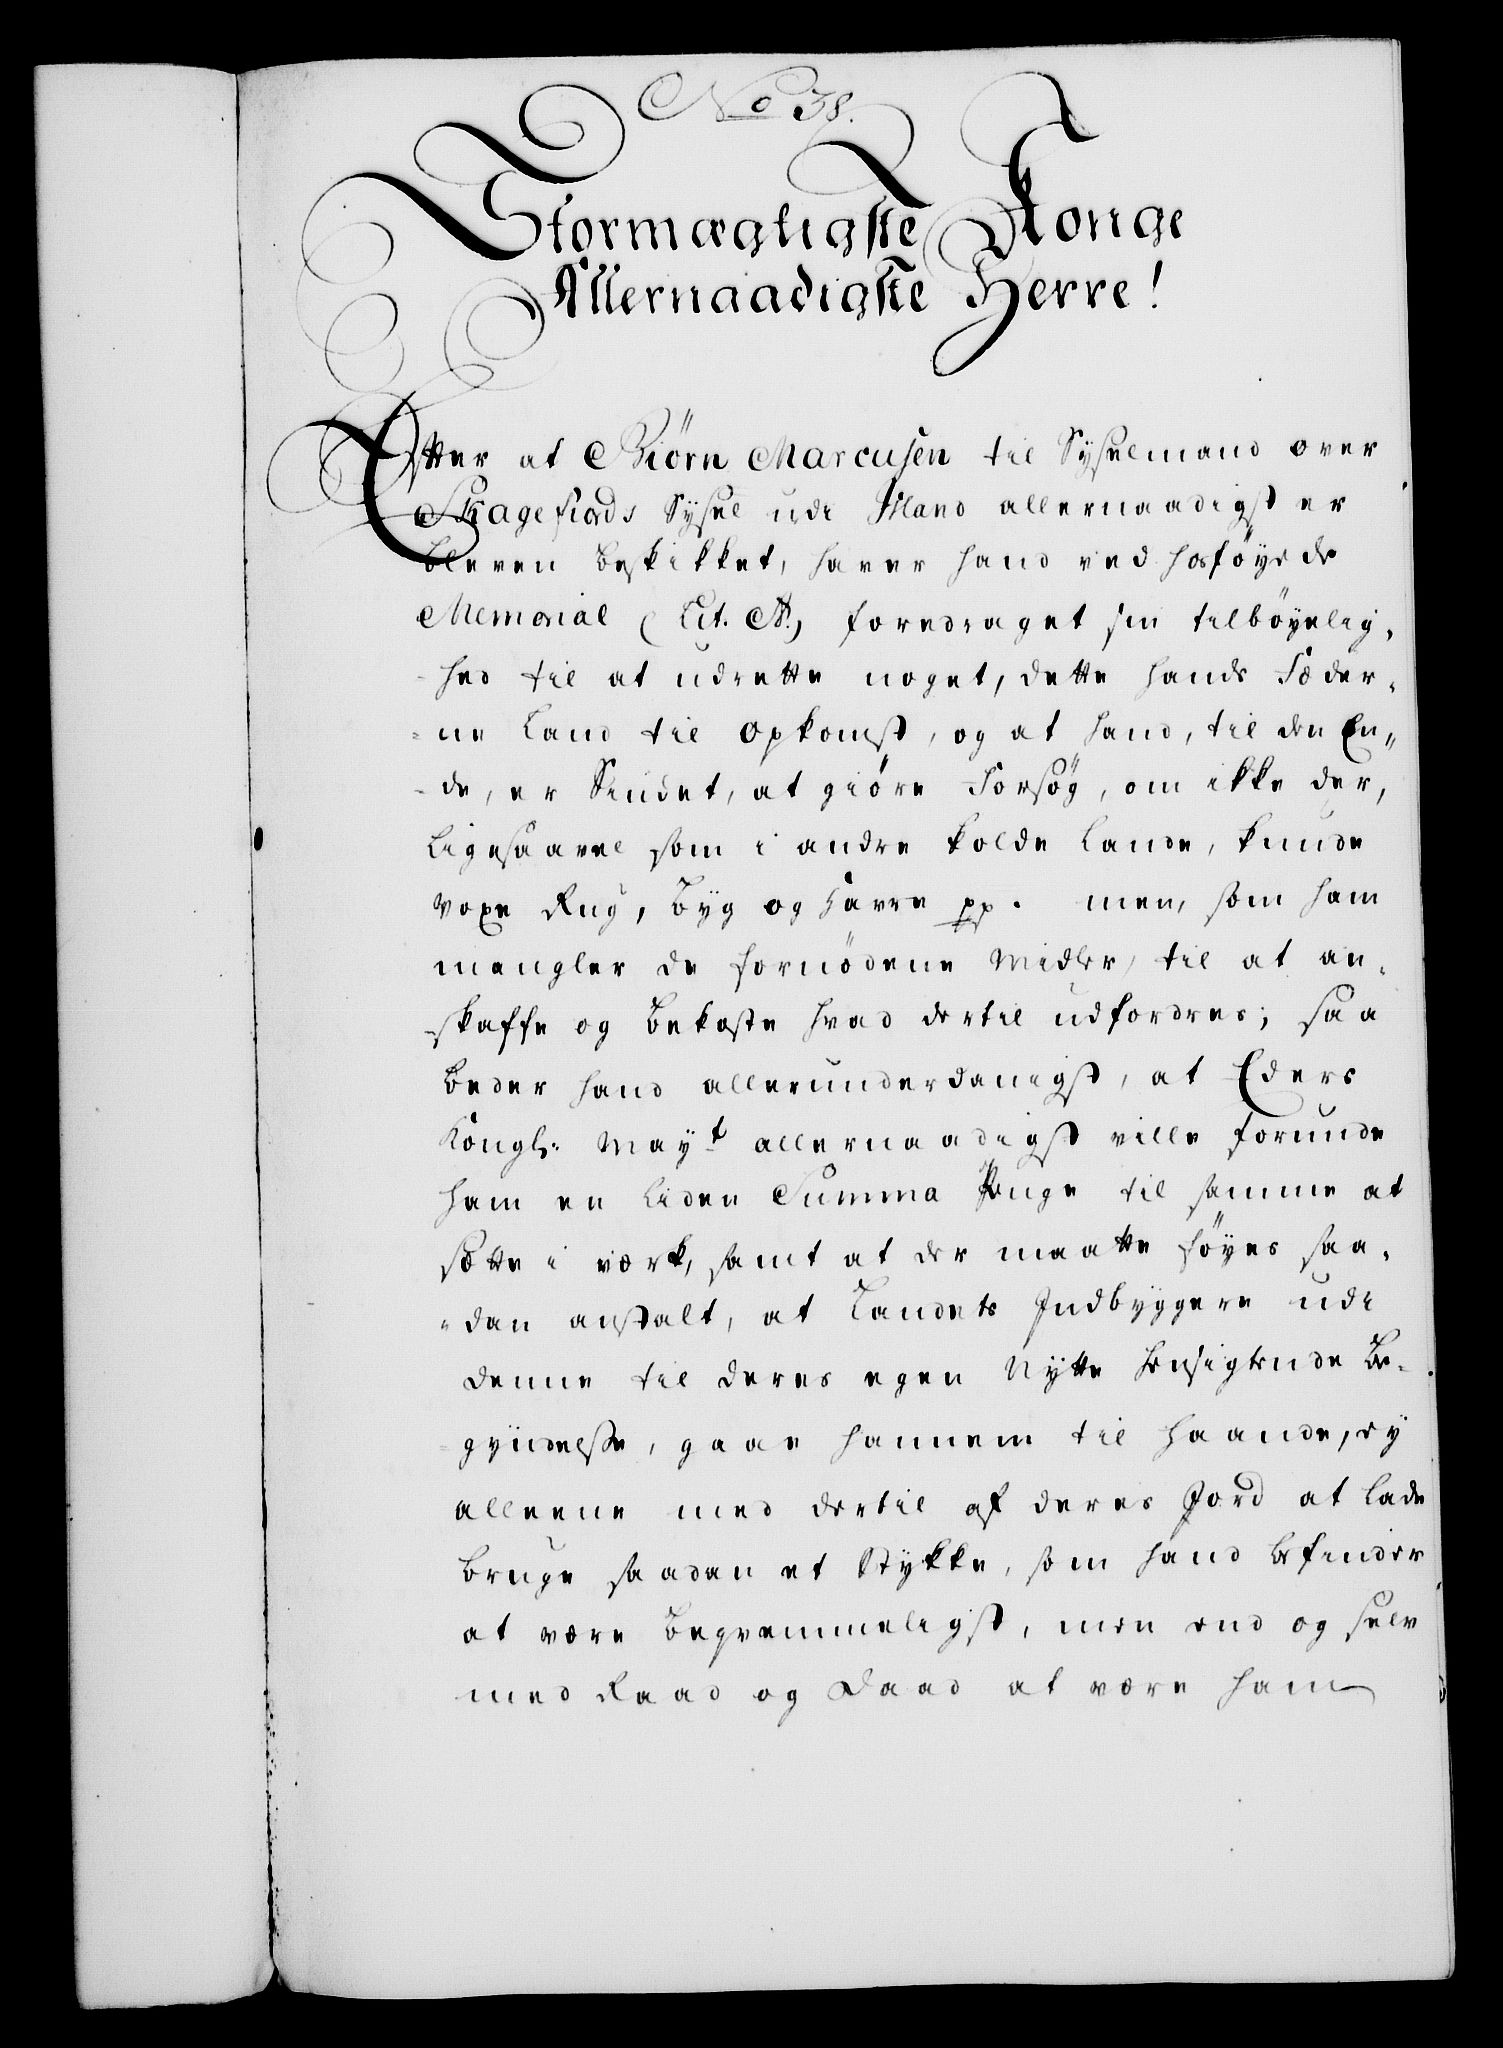 No 38.
Stormægtigste Konge
Allernaadigste Herre!
Efter at Biörn Marcusen til Syselmand over
Skagefiords Sysel udi Island allernaadigst er
bleven beskikket, haver hand ved hosföyede
Memorial (Lit. A.) foredraget sin tilböyelig-
-hed til at udrette noget, dette hands Fæder-
-ne Land til opkomst, og at hand, til den En-
-de, er Sindet, at giöre Forsög, om ikke der,
ligesaavel som i andre kolde Lande, kunde
voxe Rug, Byg og Havre pp. men, som ham
mangler de fornödene Midler, til at an-
-skaffe og bekoste hvad dertil udfordres; saa
beder hand allerunderdanigst, at Eders
Kongl: May.t allernaadigst ville forunde
ham en liden Summa Penge til samme at
sætte i værk, samt at der maatte föyes saa-
-dan anstalt, at Landets Indbyggere udi
denne til deres egen Nytte hensigtende Be-
-gyndelse, gaae hannem til haande, ey
alleene med dertil af deres Jord at lade
bruge saadan et Stykke, som hand befinder
at være beqvemmeligst, men end og selv
med Raad og Daad at være ham